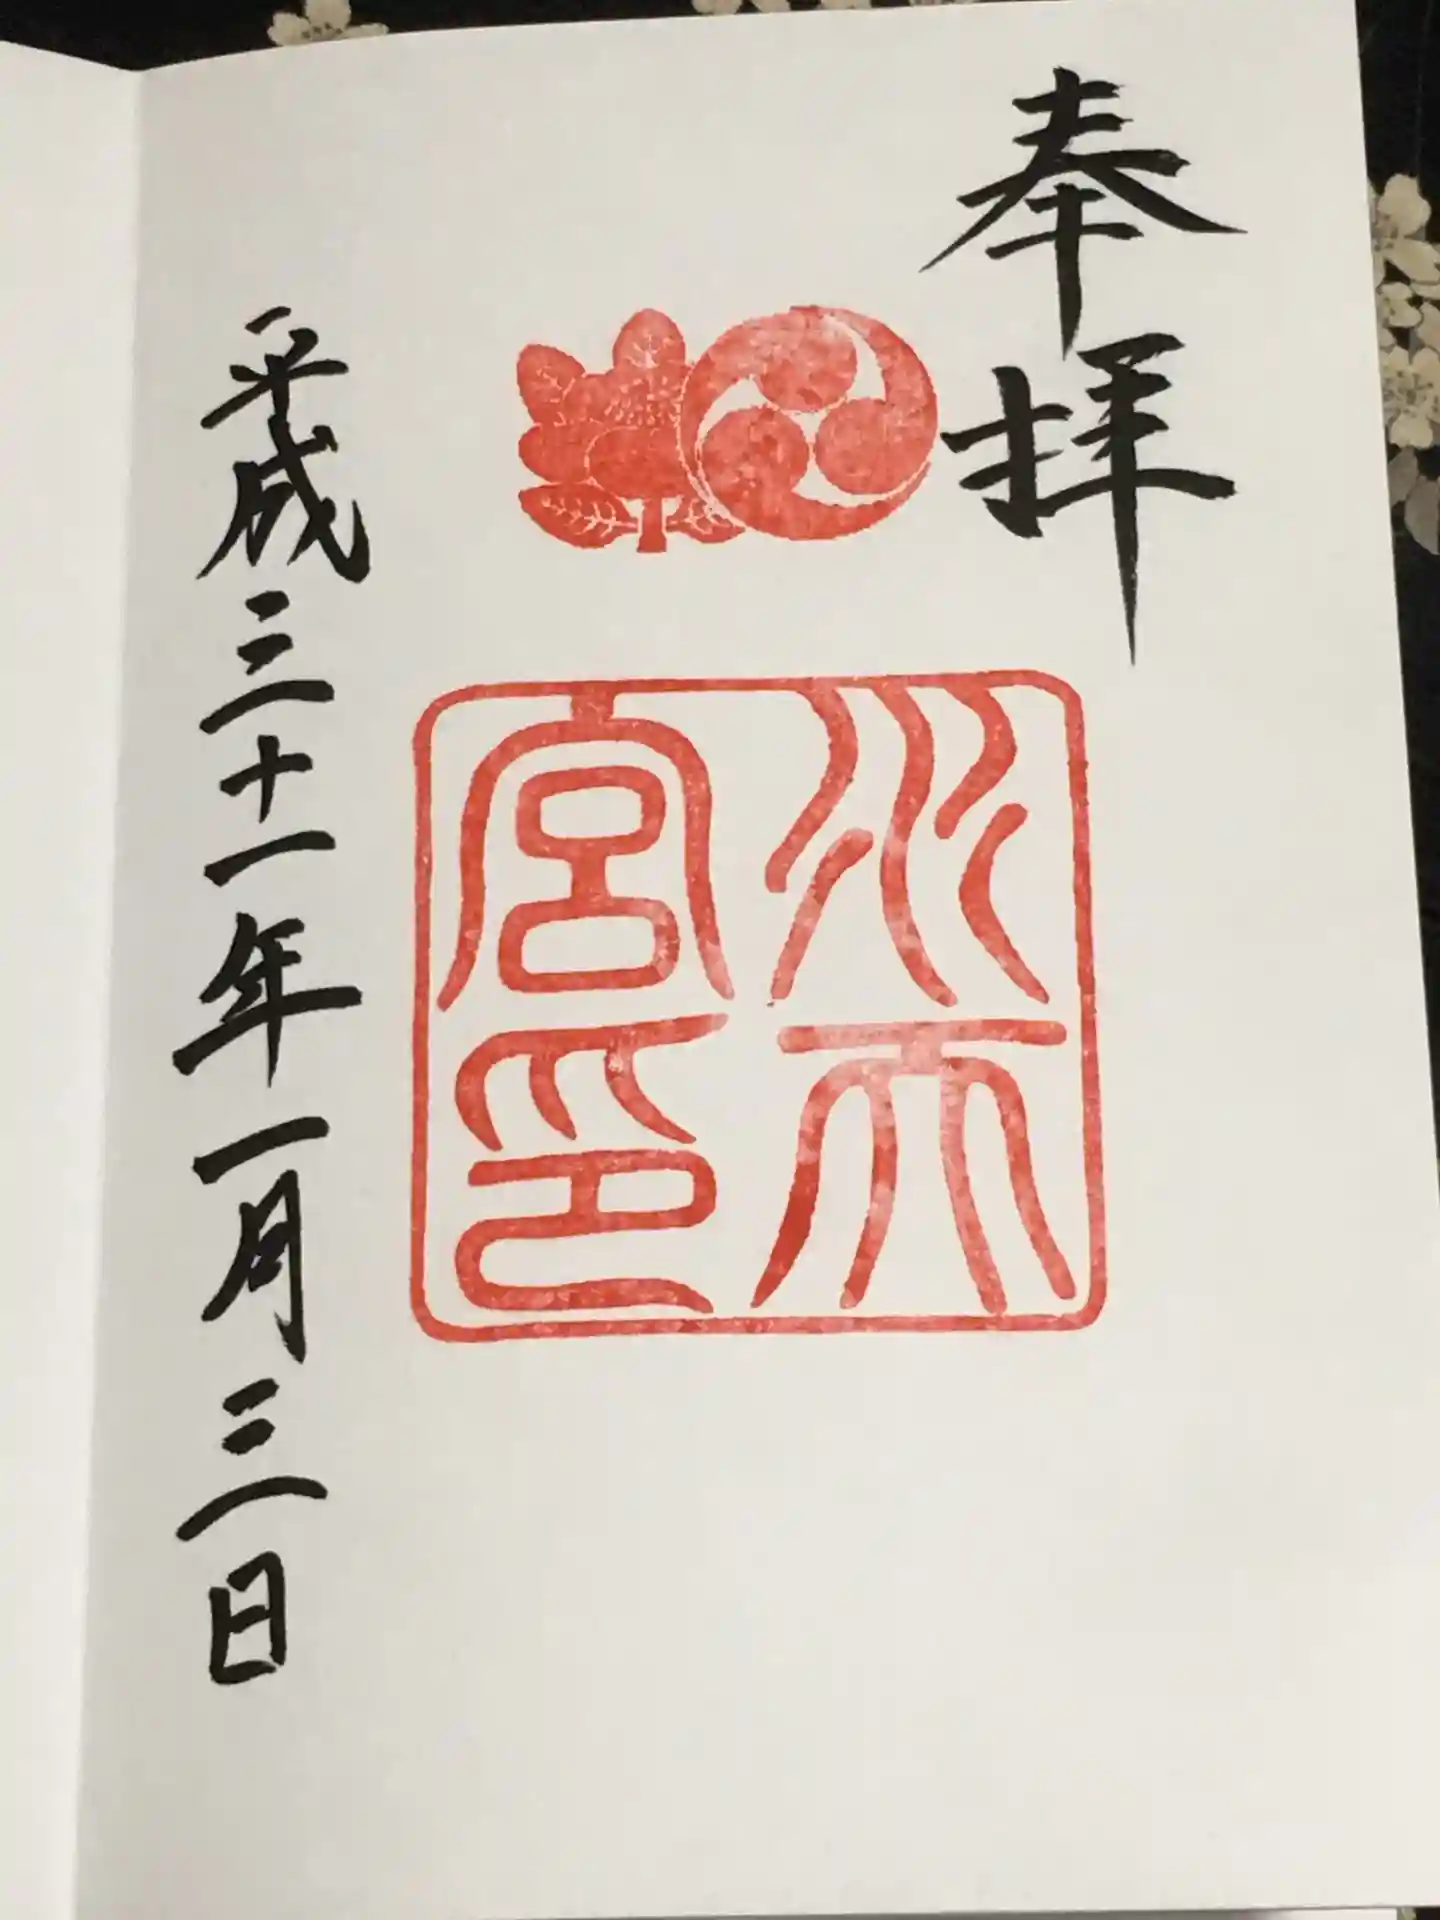 奉拝
水天
宮印
平成三十一年一月三日